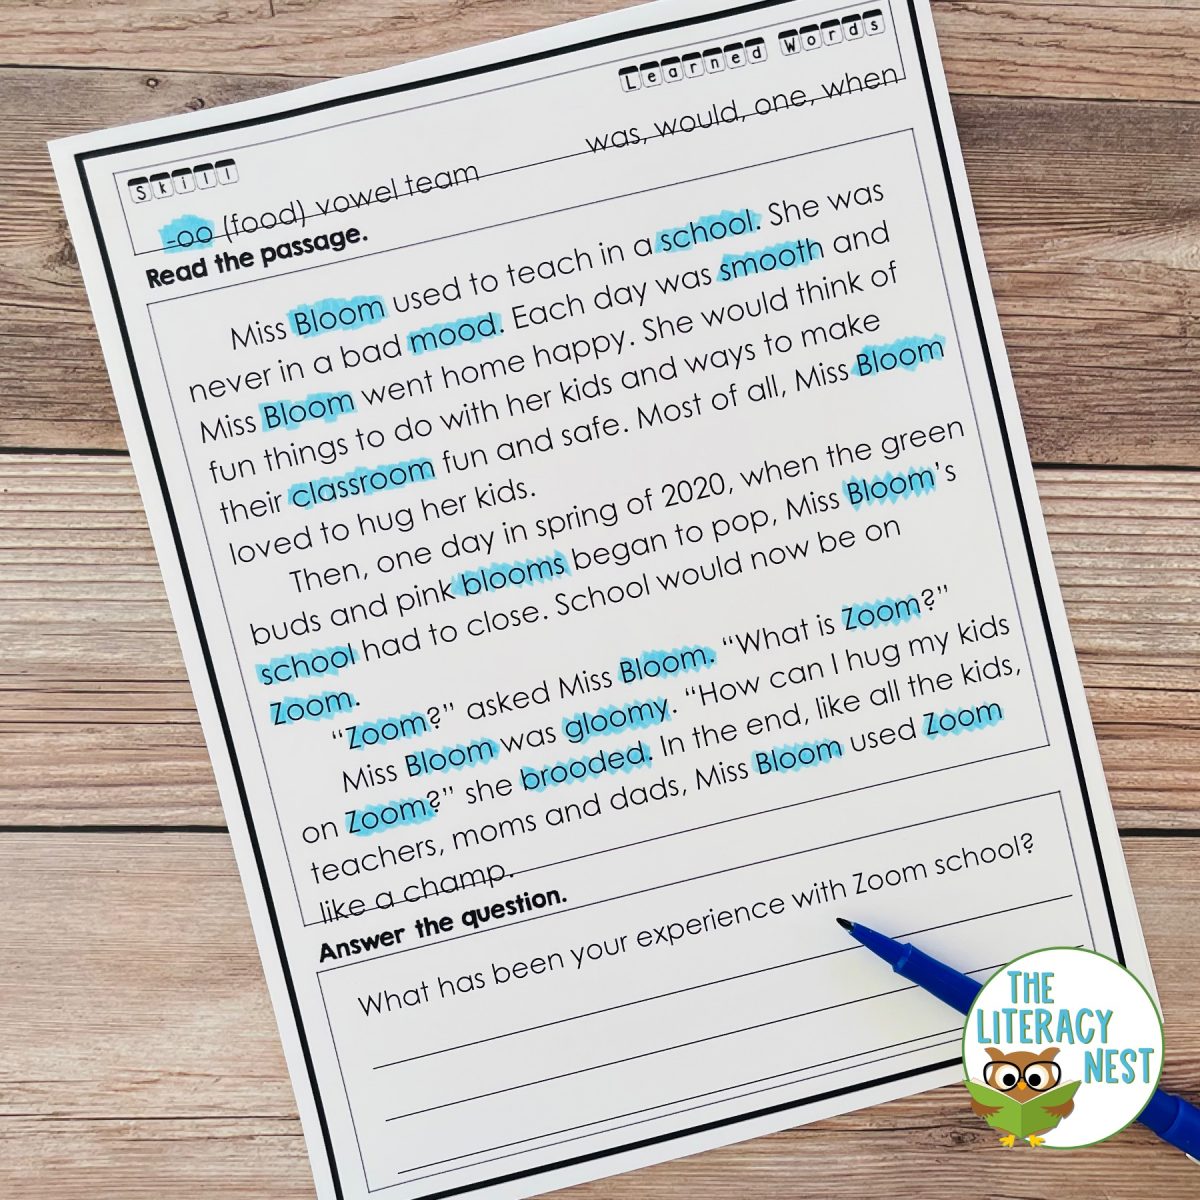 Skill
Learned Words
-oo (food) vowel team
was, would, one, when
Read the passage.
Miss Bloom used to teach in a school. She was
never in a bad mood. Each day was smooth and
Miss Bloom went home happy. She would think of
fun things to do with her kids and ways to make
their classroom fun and safe. Most of all, Miss Bloom
loved to hug her kids.
Then, one day in spring of 2020, when the green
buds and pink blooms began to pop, Miss Bloom's
school had to close. School would now be on
Zoom.
“Zoom?” asked Miss Bloom. “What is Zoom?”
Miss Bloom was gloomy. “How can I hug my kids
on Zoom?” she brooded. In the end, like all the kids,
teachers, moms and dads, Miss Bloom used Zoom
like a champ.
Answer the question.
What has been your experience with Zoom school?
THE
LITERACY
NEST